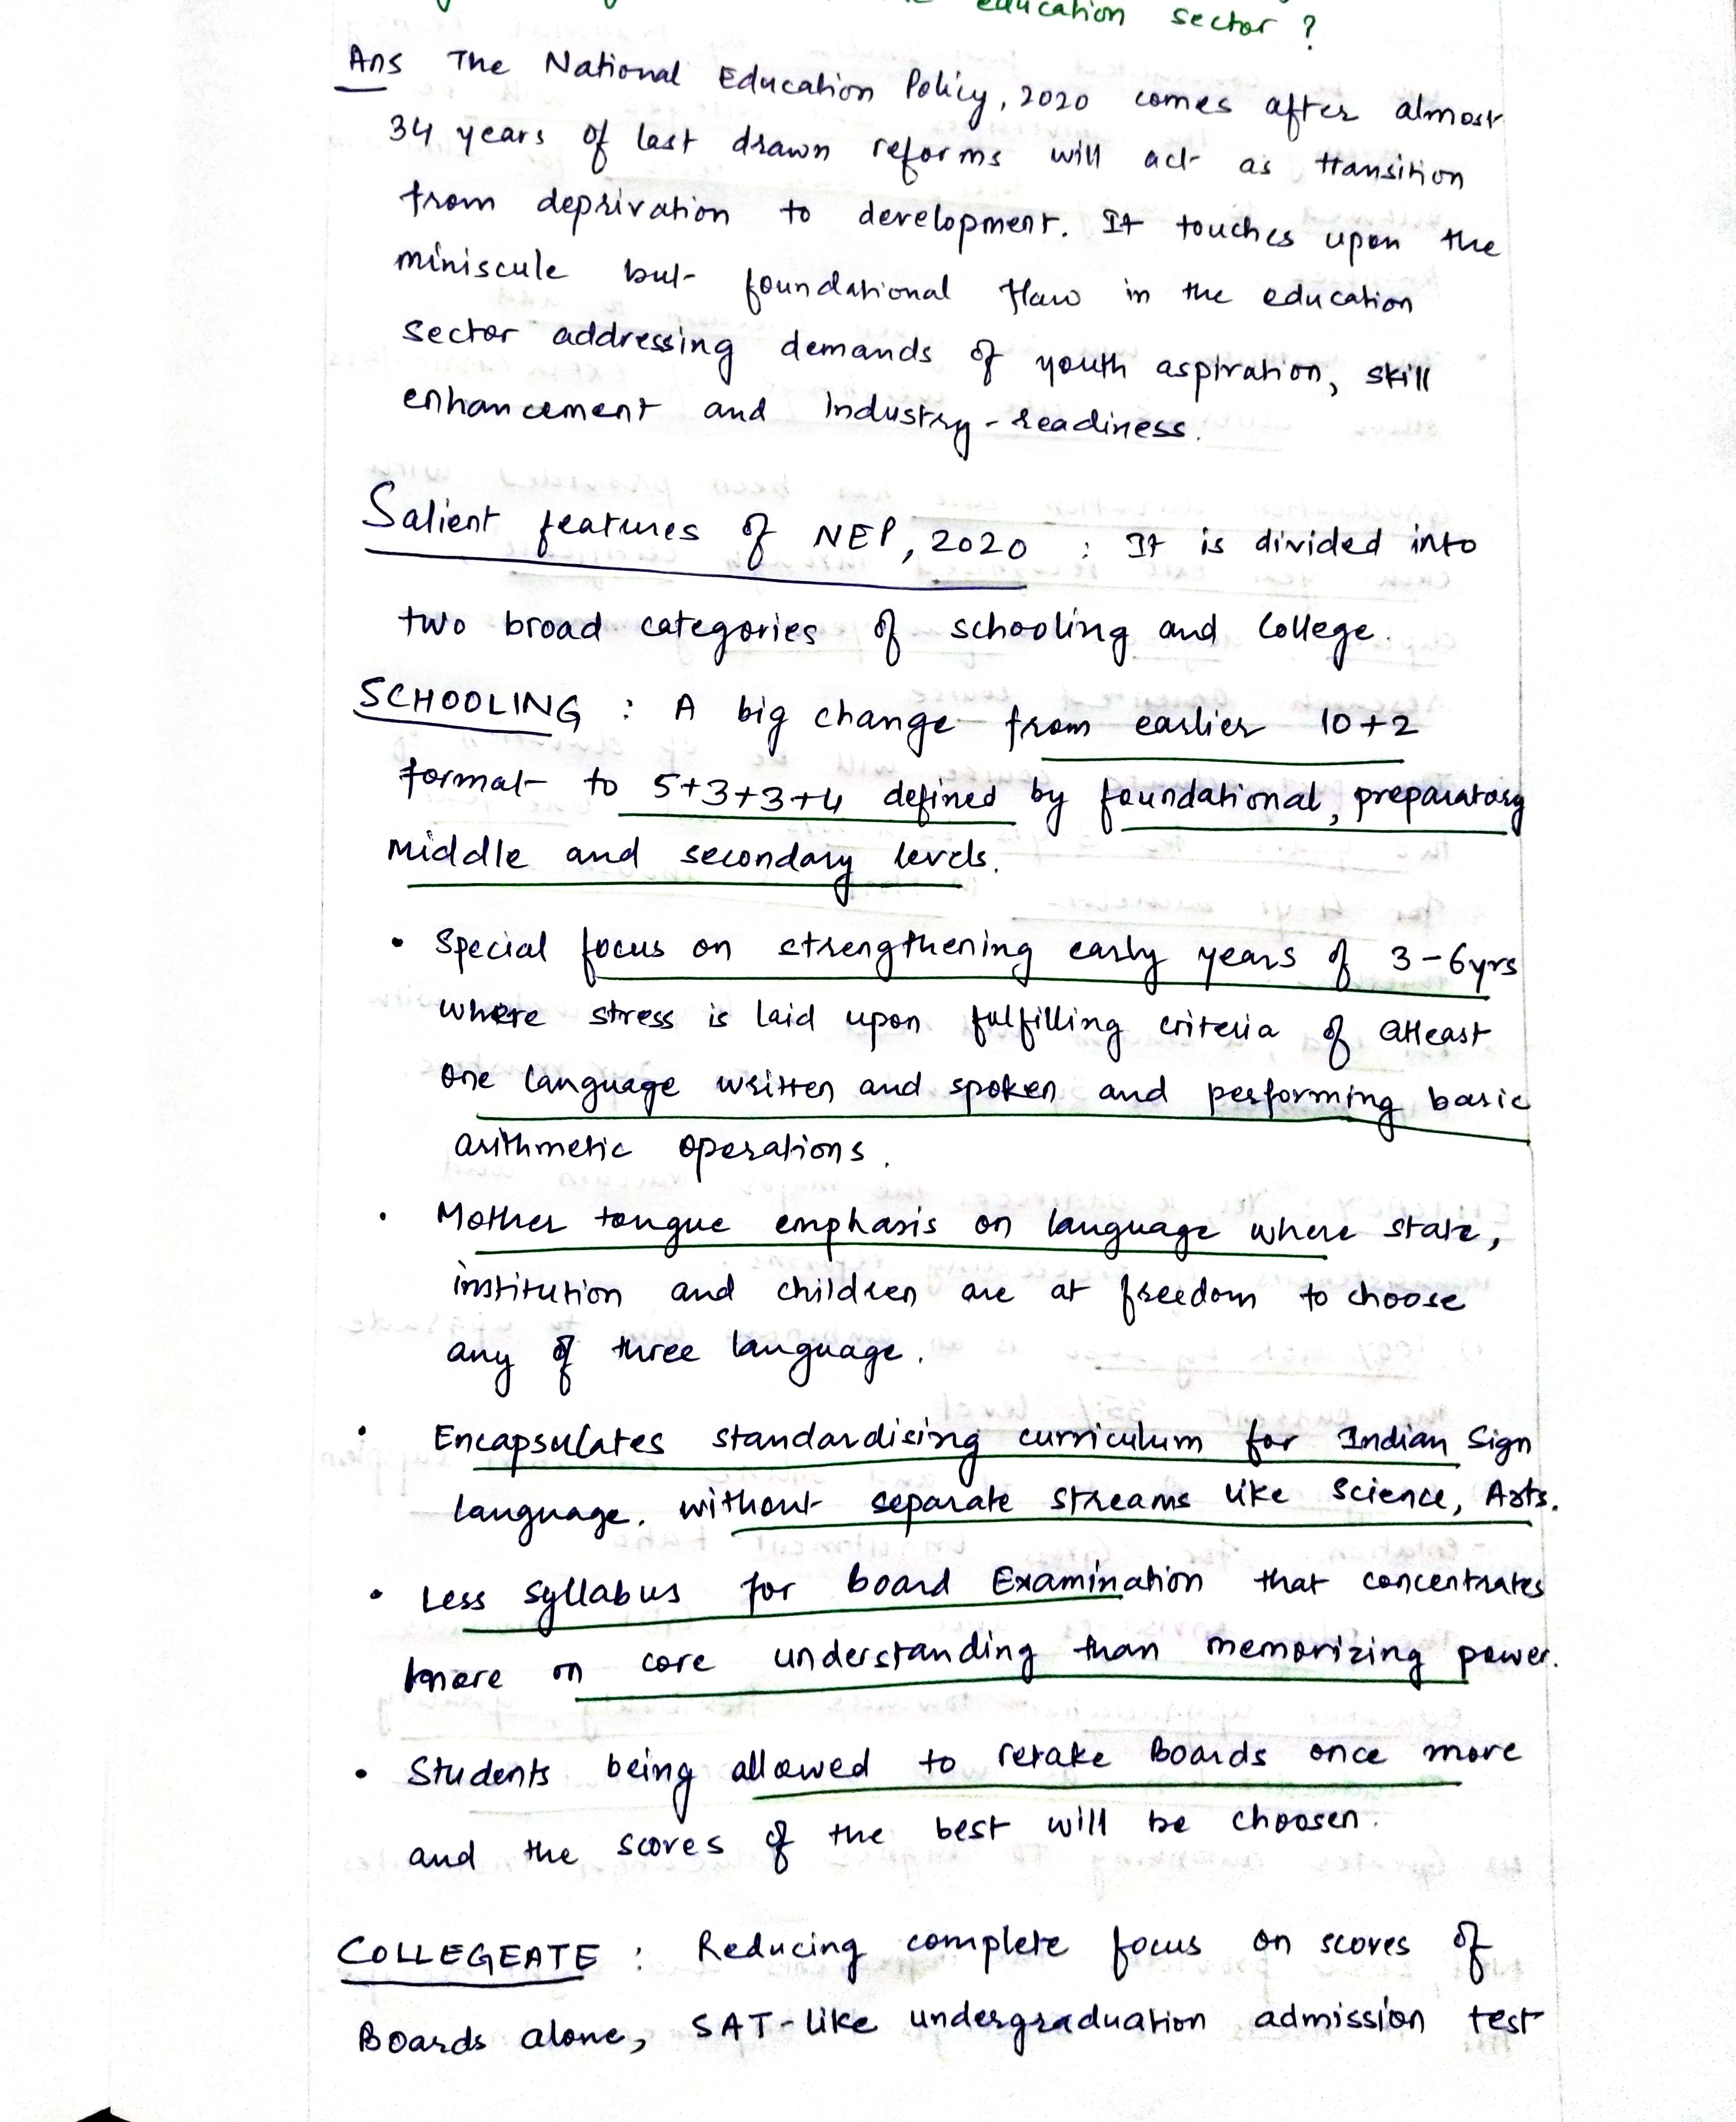 education sector ?
Ans The National Education Policy, 2020 comes after almost
34 years of last drawn reforms will act as transition
from deprivation to development. It touches upon the
miniscule but foundational flaw in the education
sector addressing demands of youth aspiration, skill
enhancement and industry-readiness.
Salient features of NEP, 2020 : It is divided into
two broad categories of schooling and College.
SCHOOLING : A big change from earlier 10+2
format to 5+3+3+4 defined by foundational, preparatory
middle and secondary levels.
• Special focus on strengthening early years of 3-6yrs
where stress is laid upon fulfilling criteria of atleast
one language written and spoken and performing basic
arithmetic operations.
• Mother tongue emphasis on language where state,
institution and children are at freedom to choose
any of three language.
• Encapsulates standardising curriculum for Indian Sign
language. without separate streams like Science, Arts.
• Less syllabus for board Examination that concentrates
more on core understanding than memorizing power.
• Students being allowed to retake Boards once more
and the scores of the best will be choosen.
COLLEGEATE : Reducing complete focus on scores of
Boards alone, SAT-like undergraduation admission test